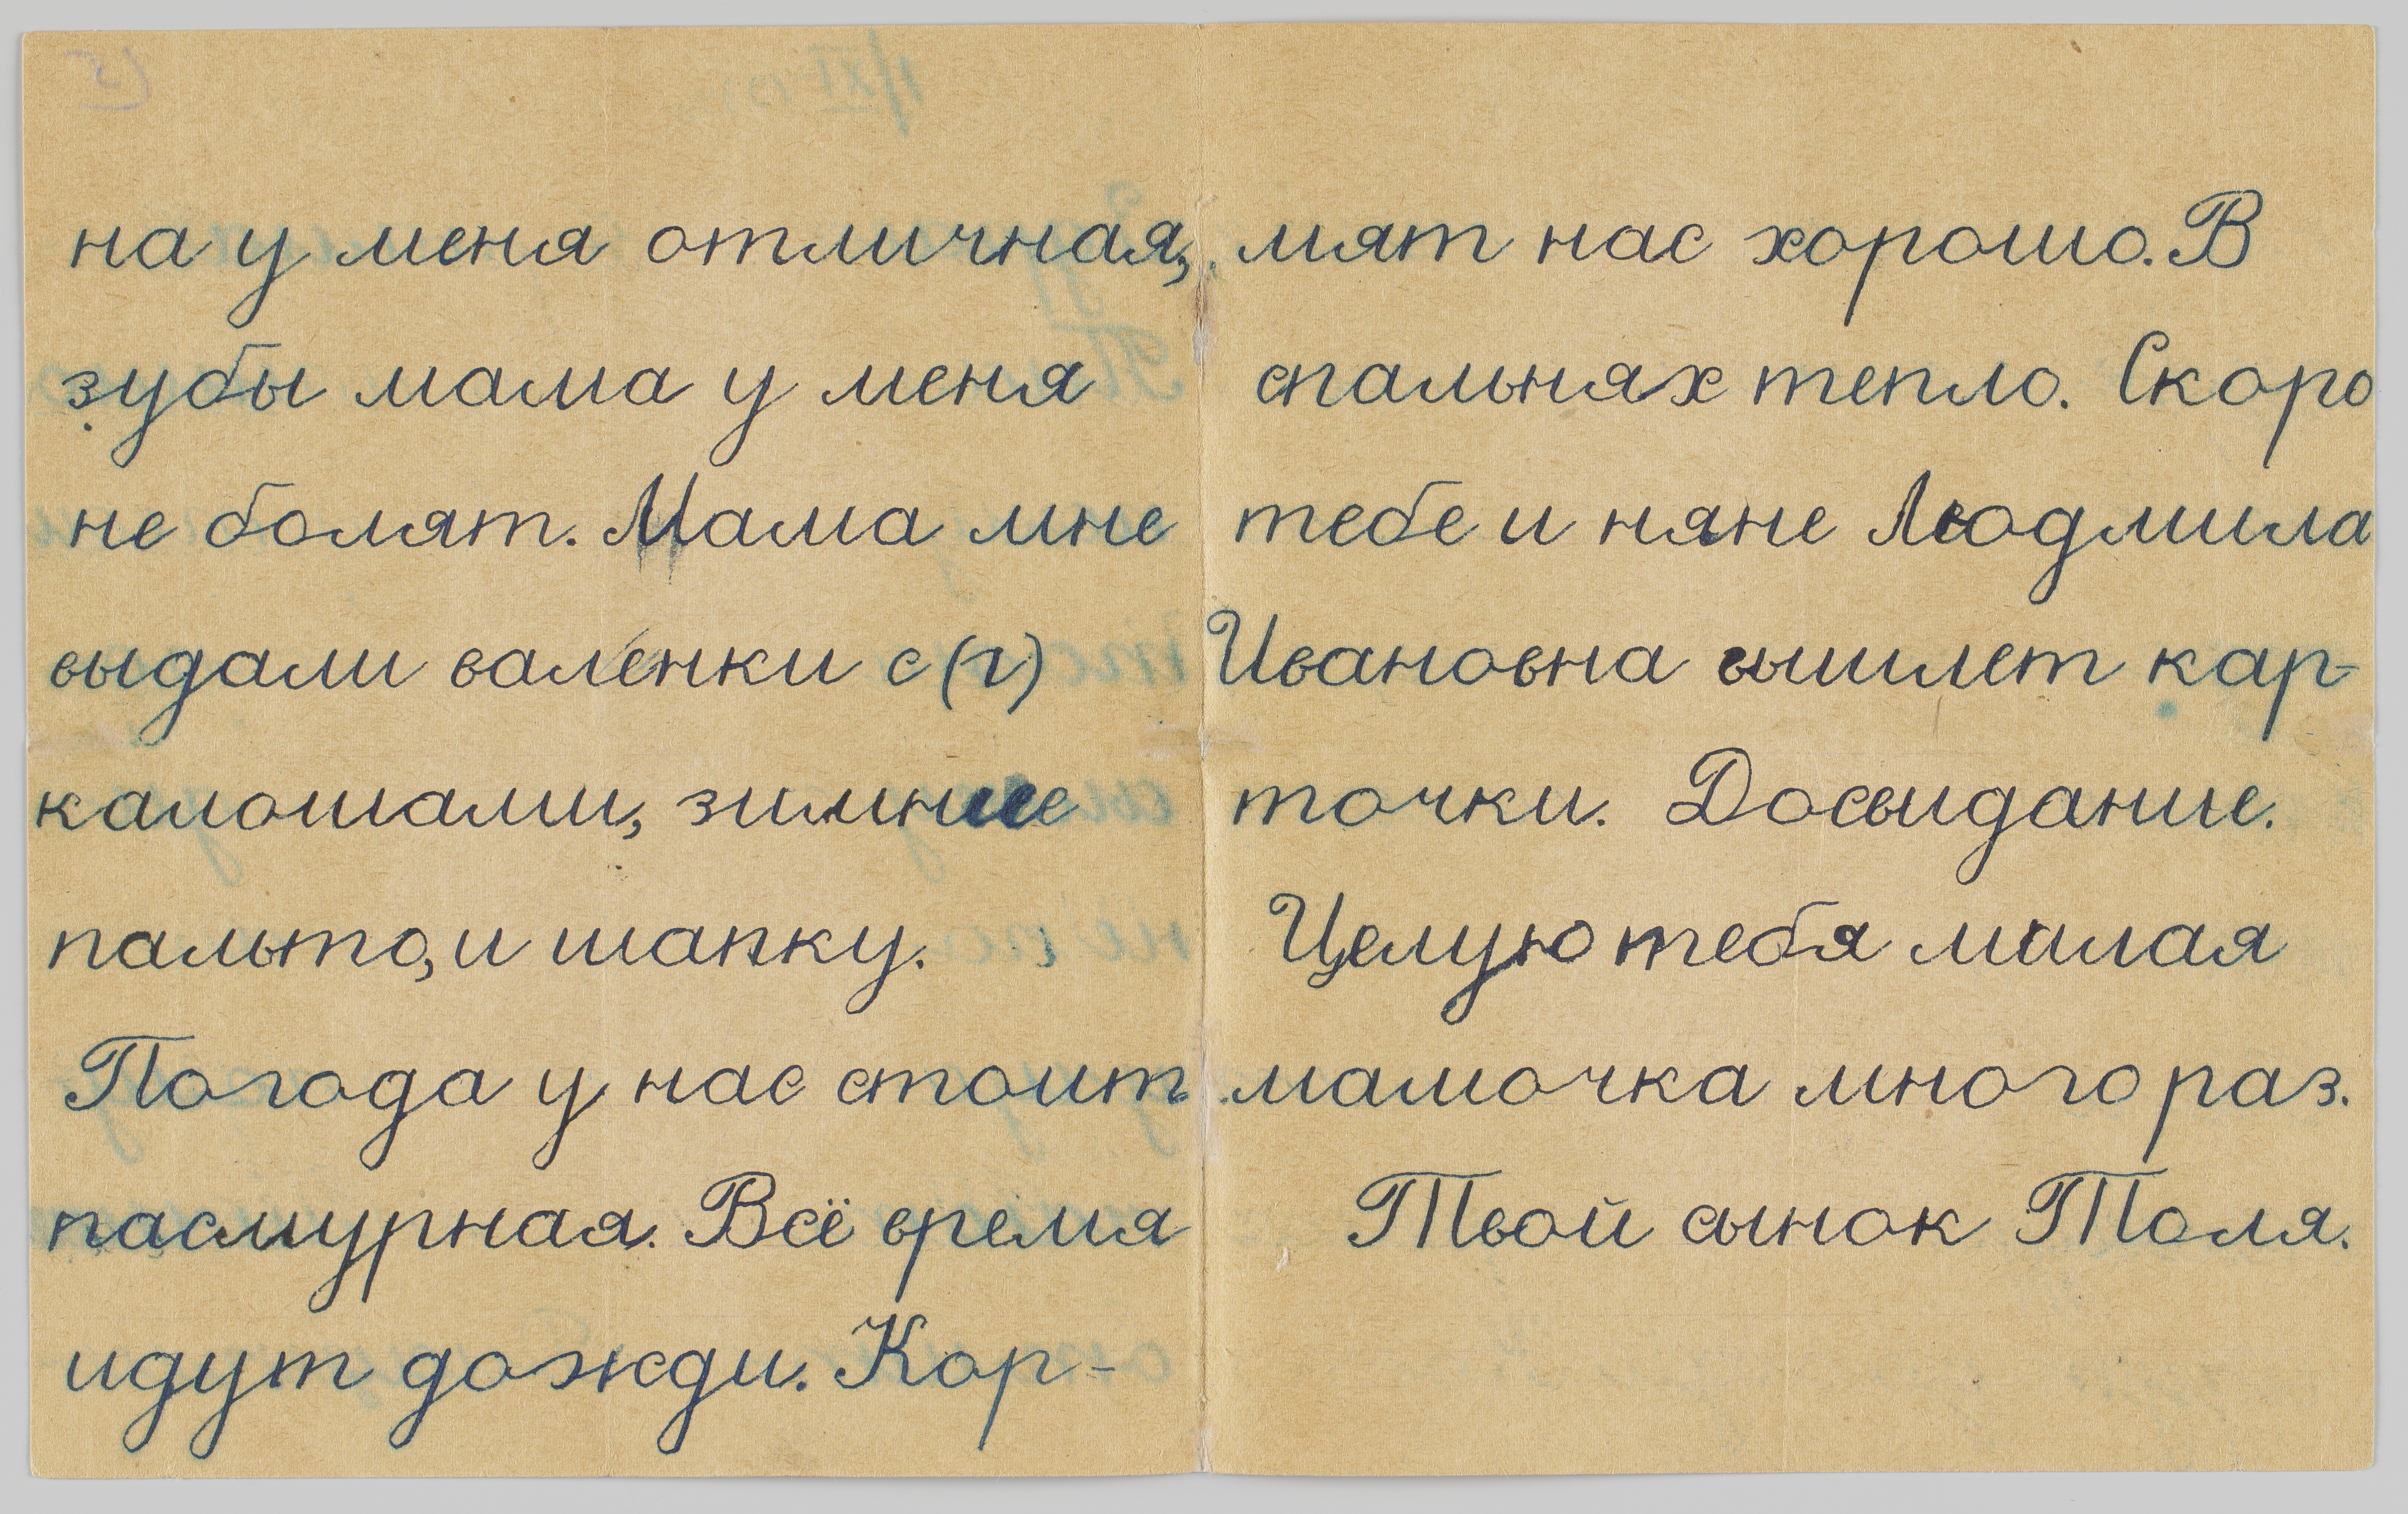 на у меня отличная,
зубы мама у меня
не болят. Мама мне
выдали валенки с (г)
калошами, зимнее
пальто, и шапку.
Погода у нас стоит
пасмурная. Всё время
идут дожди. Кор-
мят нас хорошо. В
спальнях тепло. Скоро
тебе и няне Людмила
Ивановна вышлет кар-
точки. Досвидание.
Целую тебя милая
мамочка много раз.
Твой сынок Толя.